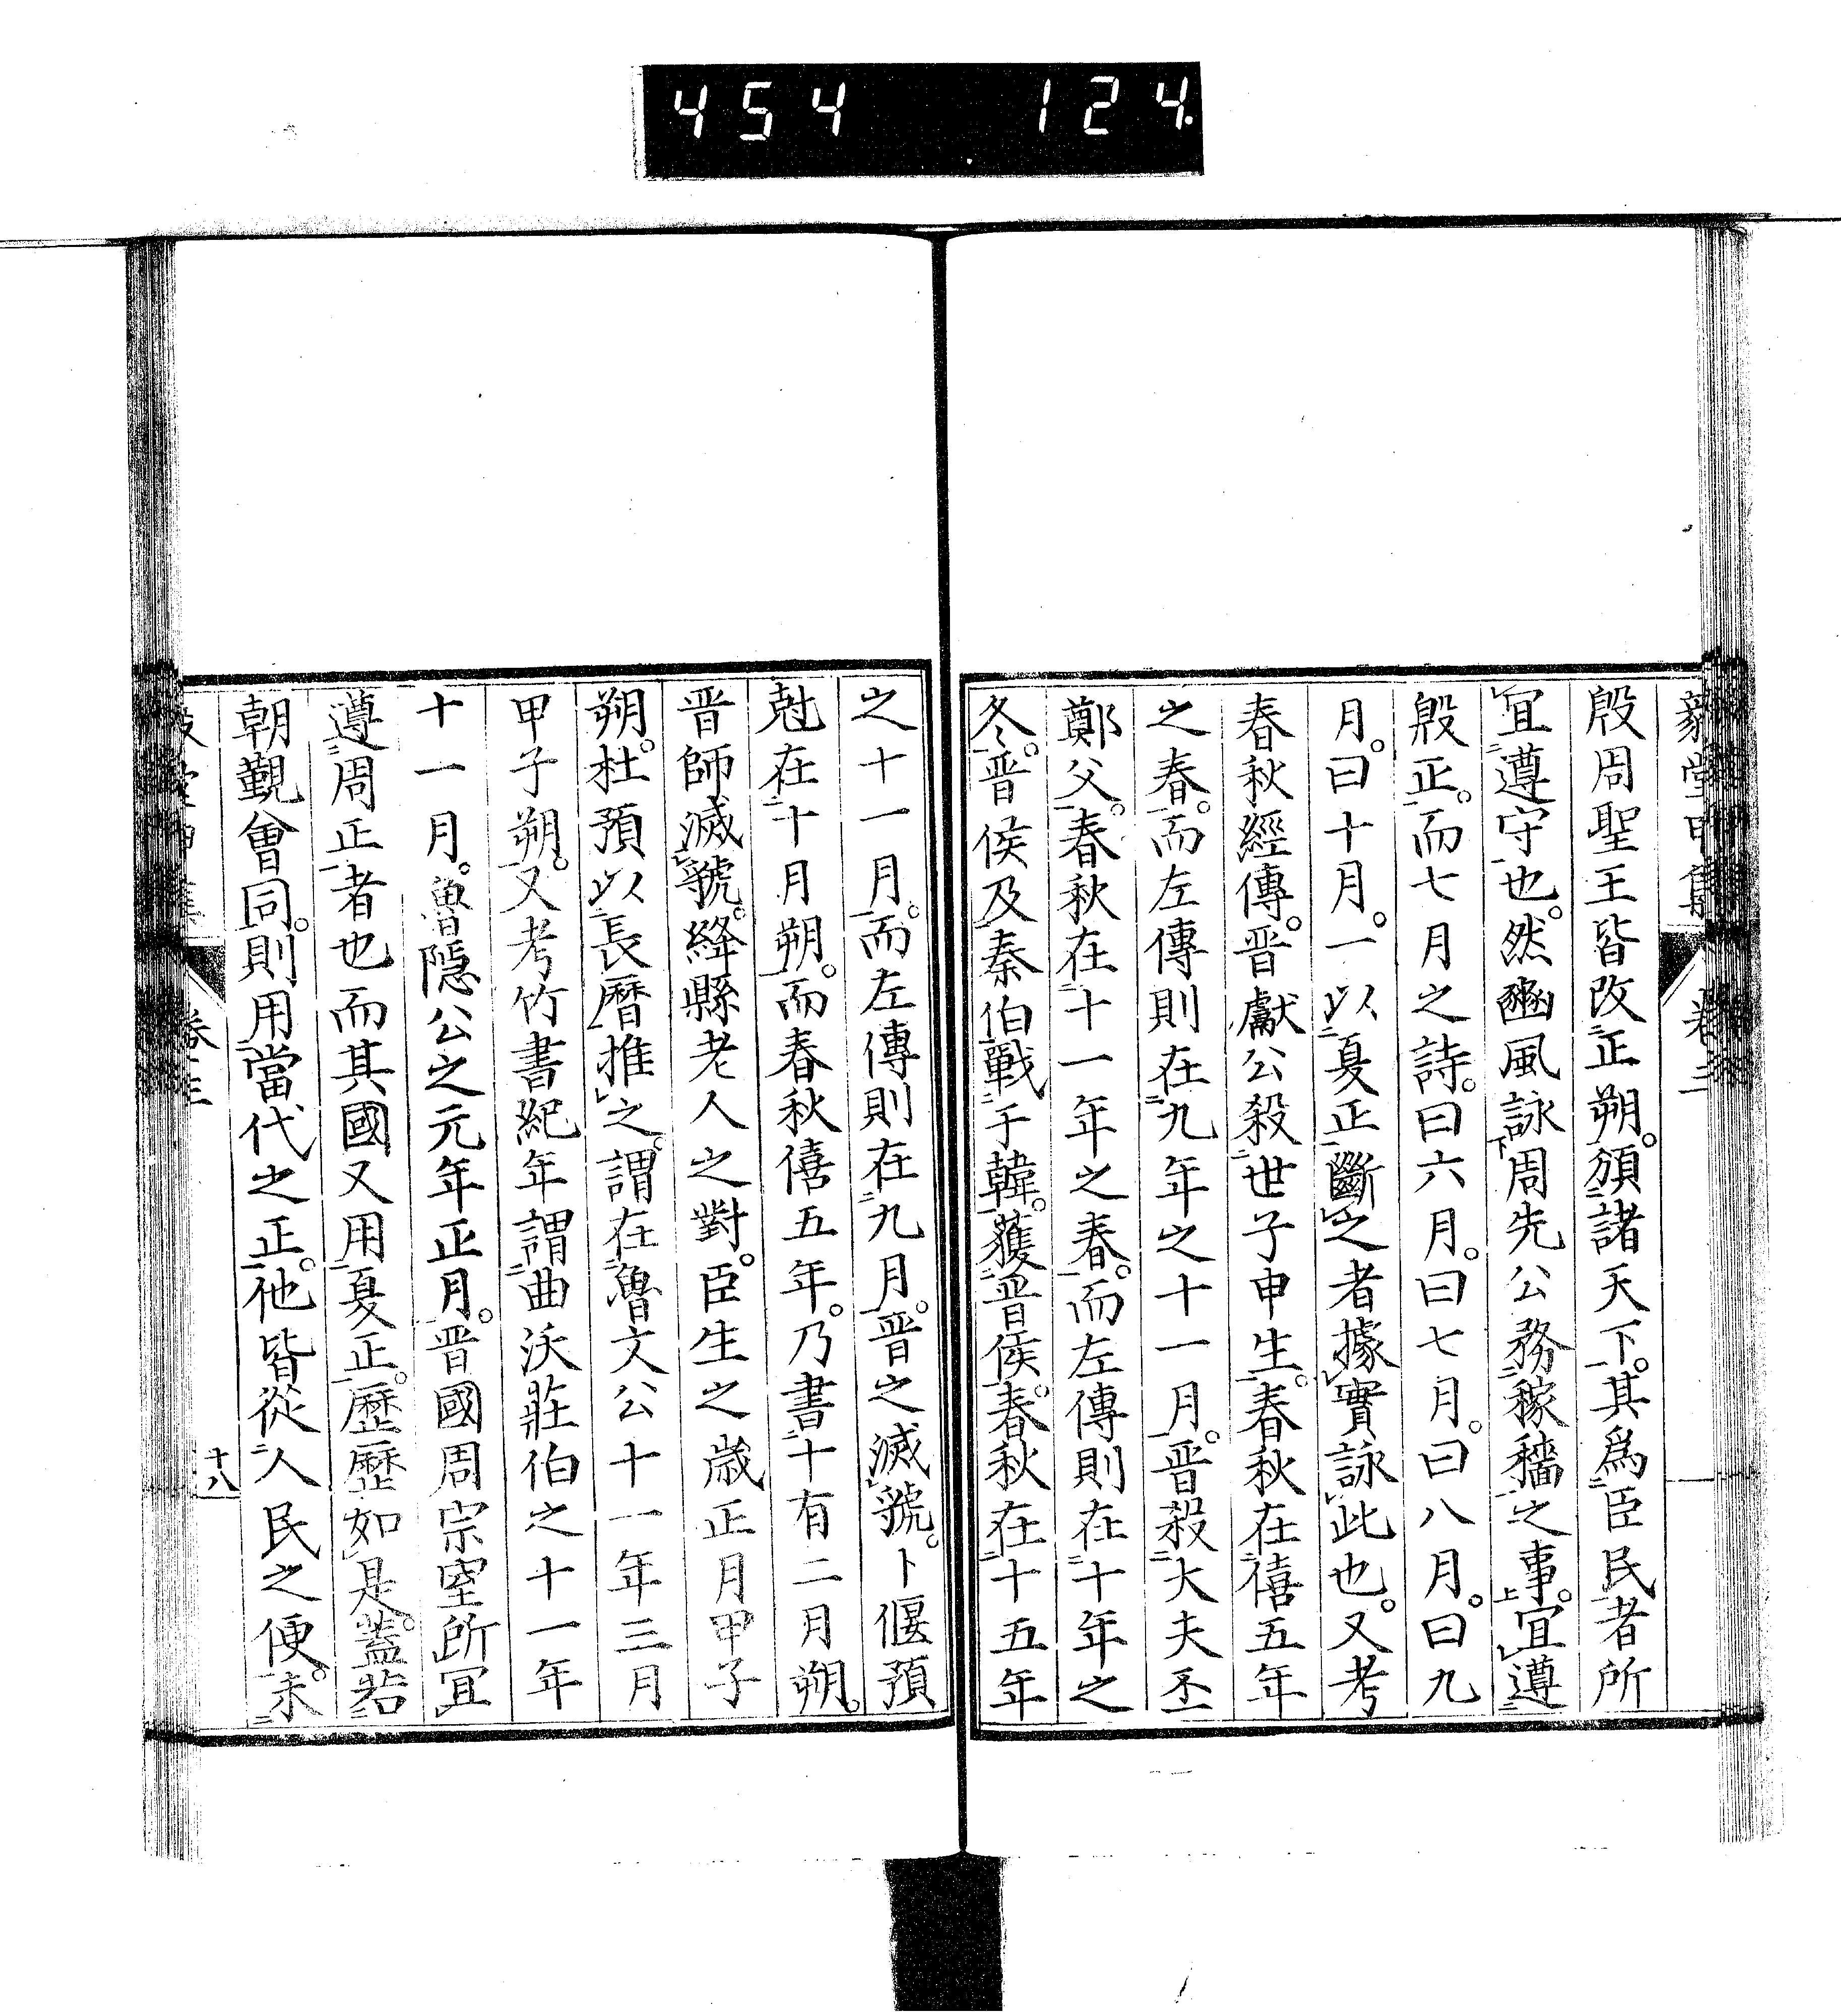 454 124.
毅堂甲集 卷三
殷周聖王皆改正朔。頒諸天下。其爲臣民者所
宜遵守也。然豳風詠周先公務稼穡之事。宜遵
殷正。而七月之詩。曰六月。曰七月。曰八月。曰九
月。曰十月。一以夏正斷之者據實詠此也。又考
春秋經傳。晋獻公殺世子申生。春秋在僖五年
之春。而左傳則在九年之十一月。晋殺大夫丕
鄭父。春秋在十一年之春。而左傳則在十年之
冬。晋侯及秦伯戰于韓。獲晋侯。春秋在十五年
之十一月。而左傳則在九月。晋之滅虢。卜偃預
尅在十月朔。而春秋僖五年。乃書十有二月朔。
晋師滅虢。絳縣老人之對。臣生之歳正月甲子
朔。杜預以長曆推之。謂在魯文公十一年三月
甲子朔。又考竹書紀年謂曲沃莊伯之十一年
十一月。魯隱公之元年正月。晋國周宗室所宜
遵周正者也而其國又用夏正。歷歷如是。蓋若
朝覲會同。則用當代之正。他皆從人民之便。未
卷三 十八